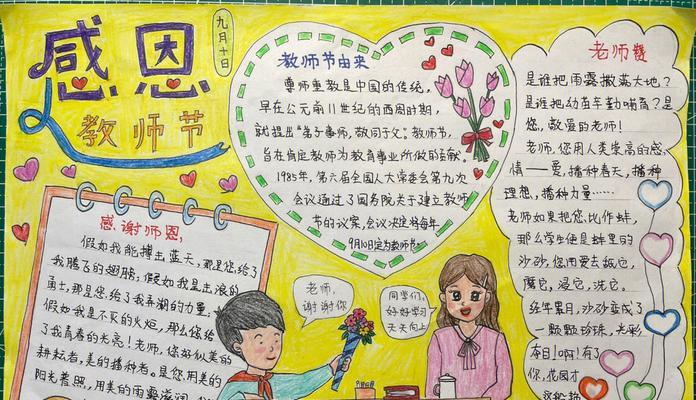 感恩
教师节
九月十日
教师节由来
尊师重教是中国的传统,
早在公元前11世纪的西周时期,
就提出“弟子事师,敬同于父”。教师节,
旨在肯定教师为教育事业所做的贡献。
1985年,第六届全国人大常委会第九次
会议通过了国务院关于建立教师
节的议案,会议决定将每年
9月10日定为教师节。
老师赞
是谁把雨露撒满大地?
是谁把幼苗辛勤哺育?是
您,敬爱的老师!
老师,您用人类崇高的感
情——爱,播种春天,播种
理想,播种力量……
老师如果把您比作蚌,
那么学生便是蚌里的
沙砂,您用爱去舐它,
磨它,浸它,洗它。
经年累月,沙砂变成了
一颗颗珍珠,光彩
夺目!啊!有了
你,花园才
感谢师恩,
假如我能搏击蓝天,那是您给了
我腾飞的翅膀,假如我是击浪的
勇士,那是您给了我弄潮的力量,
假如我是不灭的火炬,那么您给
了我青春的光亮!老师,您好似美的
耕耘者,美的播种者。是您用美的
阳光普照,用美的雨露滋润
老师,
谢谢你
同学们,
好好学习
天天向上